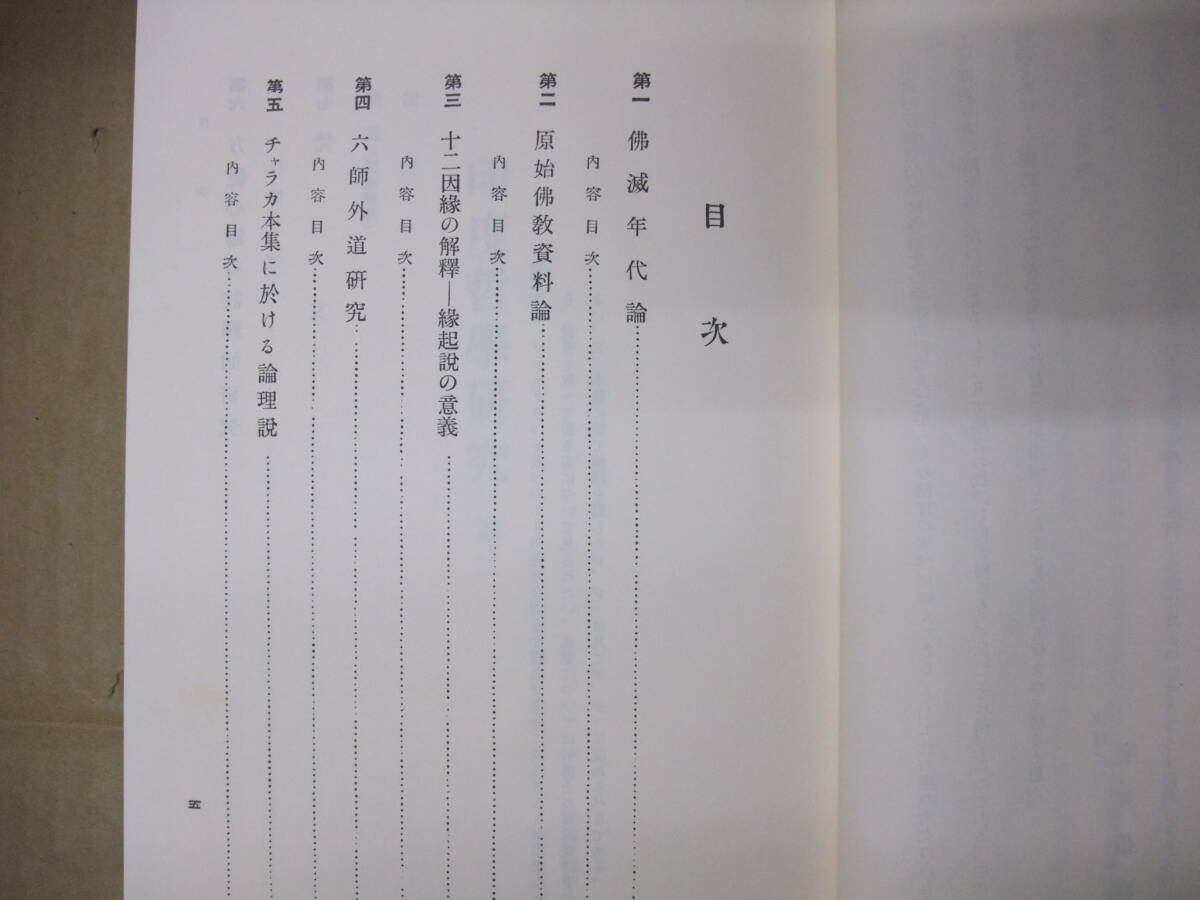 目次
第一 佛滅年代論
内容目次
第二 原始佛教資料論
内容目次
第三 十二因緣の解釋―緣起說の意義
内容目次
第四 六師外道硏究
内容目次
第五 チャラカ本集に於ける論理說
内容目次
五